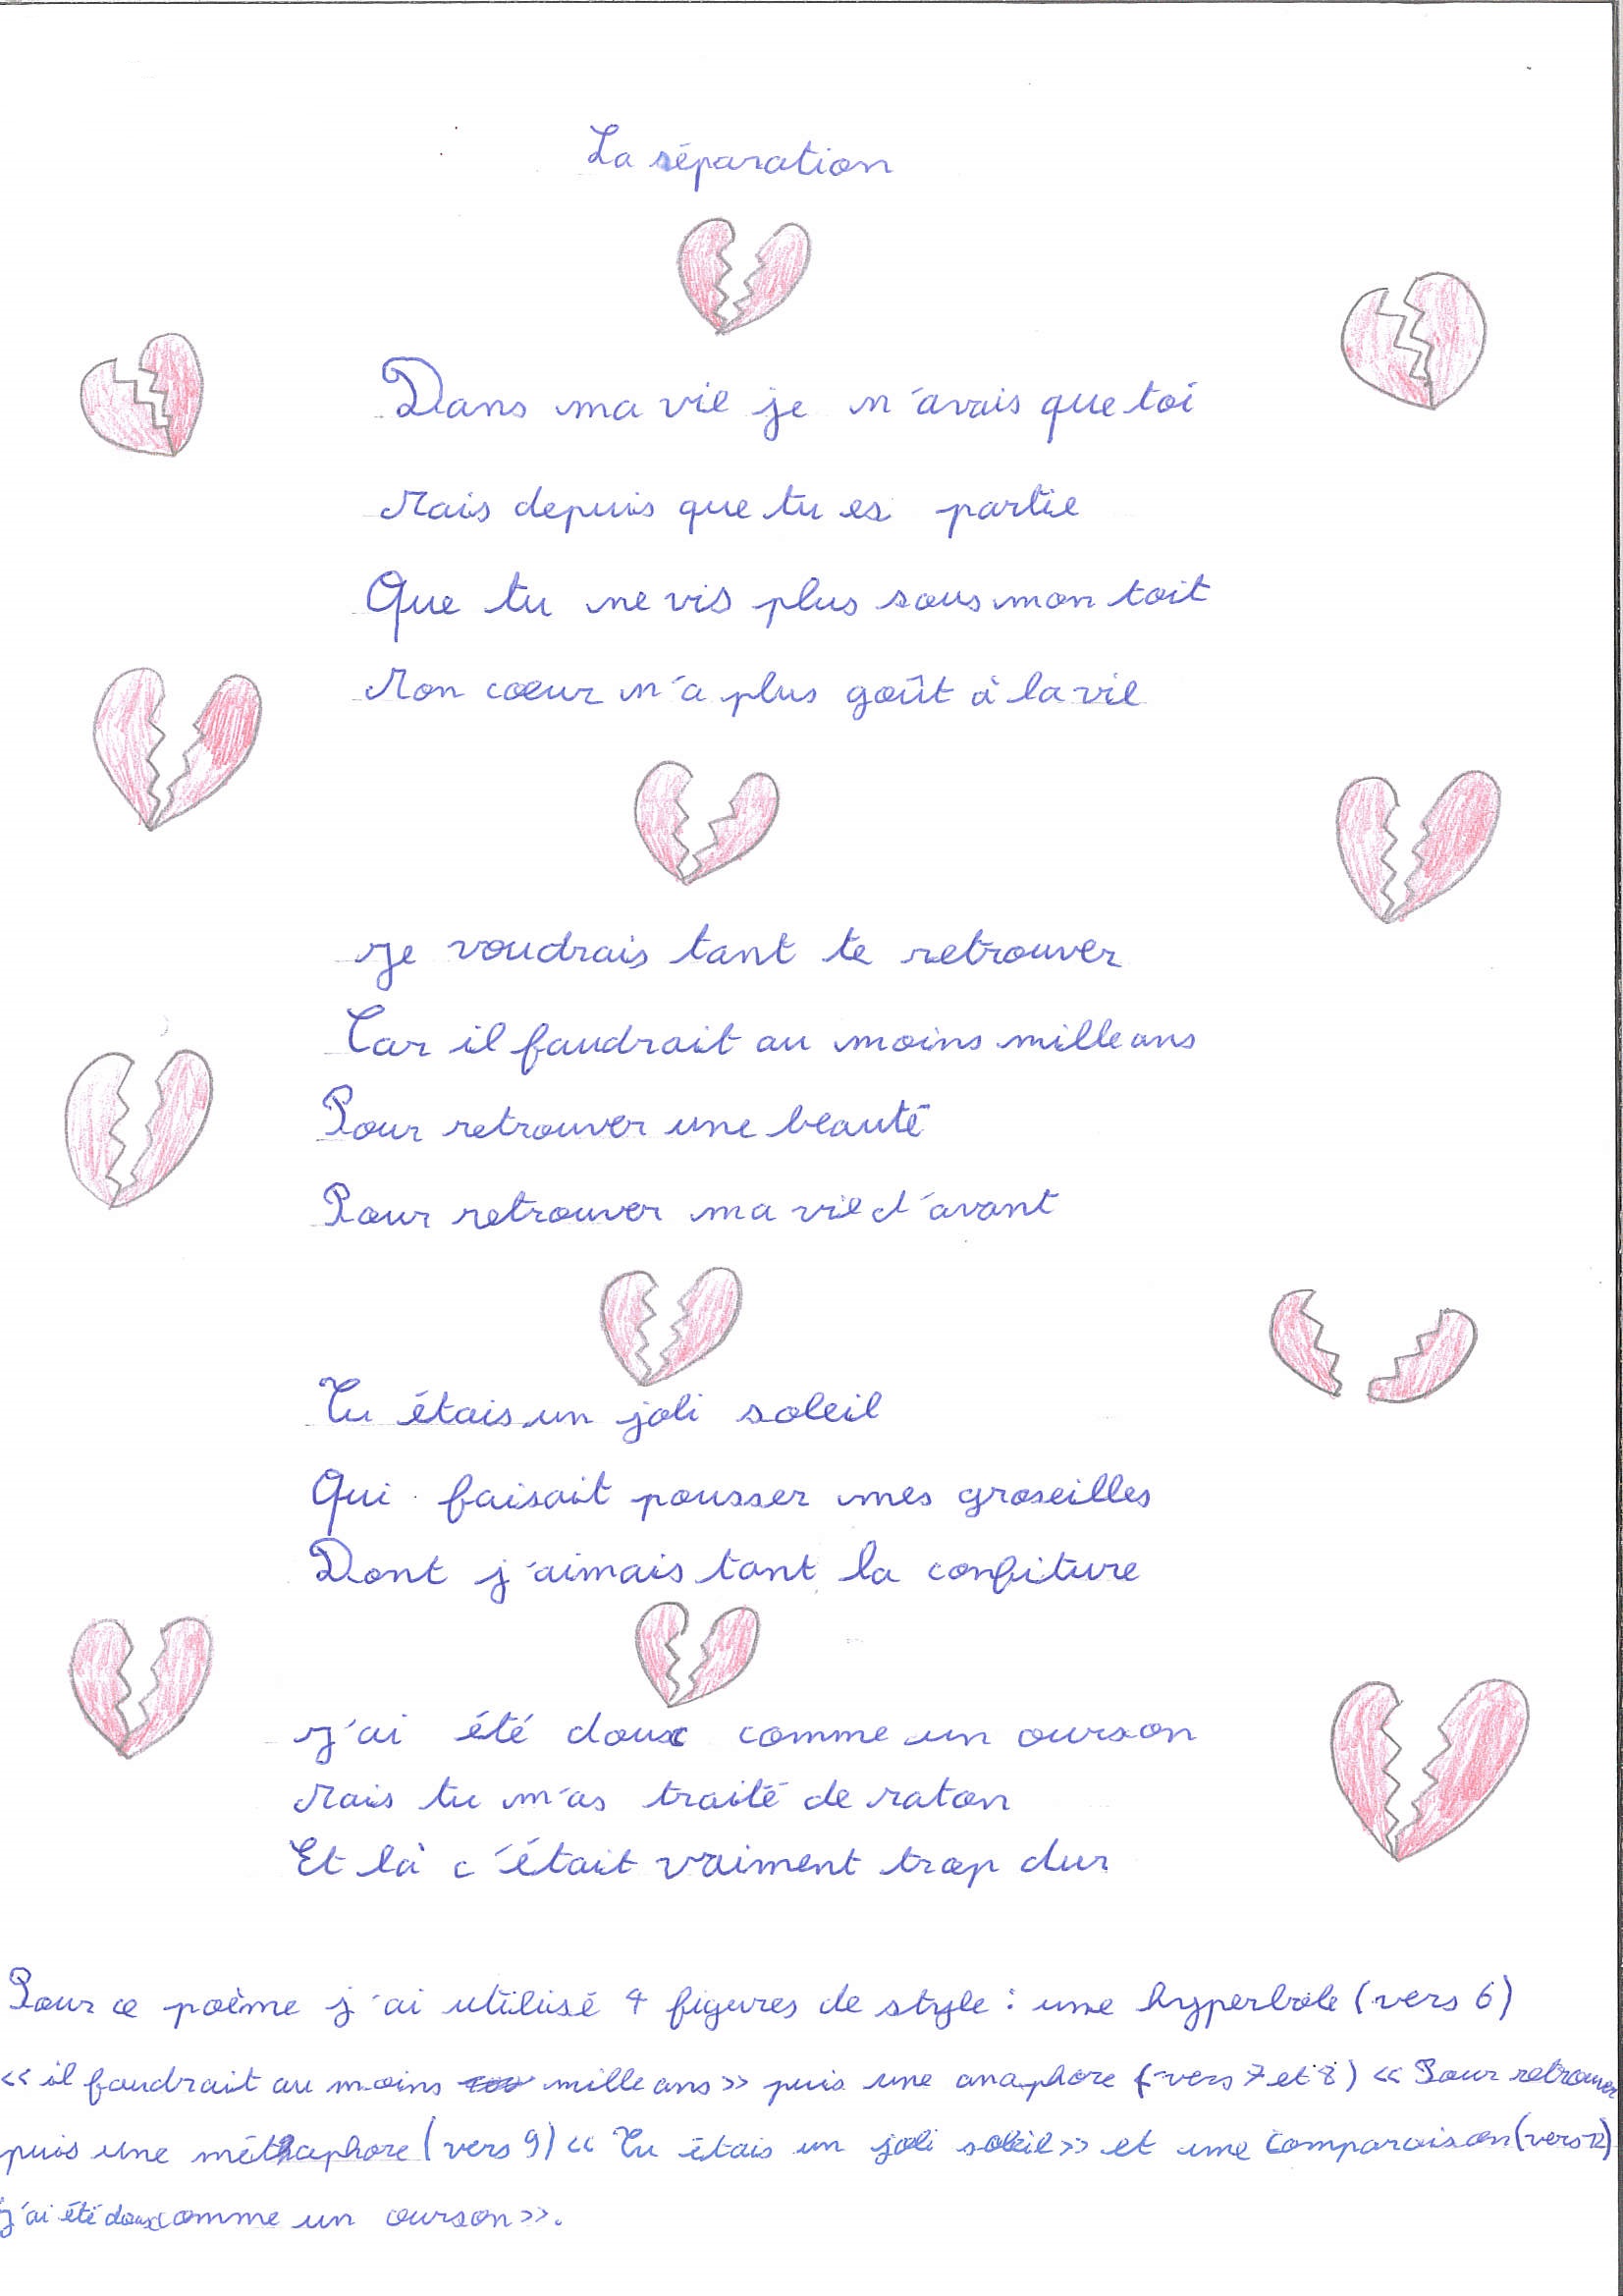 La séparation
Dans ma vie je n'avais que toi
Mais depuis que tu es partie
Que tu ne vis plus sous mon toit
Mon coeur n'a plus goût à la vie
Je voudrais tant te retrouver
Car il faudrait au moins mille ans
Pour retrouver une beauté
Pour retrouver ma vie d'avant
Tu étais un joli soleil
Qui faisait pousser mes groseilles
Dont j'aimais tant la confiture
J'ai été doux comme un ourson
Mais tu m'as traité de raton
Et là c'était vraiment trop dur
Pour ce poème j'ai utilisé 4 figures de style : une hyperbole (vers 6)
« il faudrait au moins mille ans » puis une anaphore (vers 7 et 8) « Pour retrouver
puis une méthaphore (vers 9) « Tu étais un joli soleil » et une comparaison (vers 12)
j'ai été doux comme un ourson ».